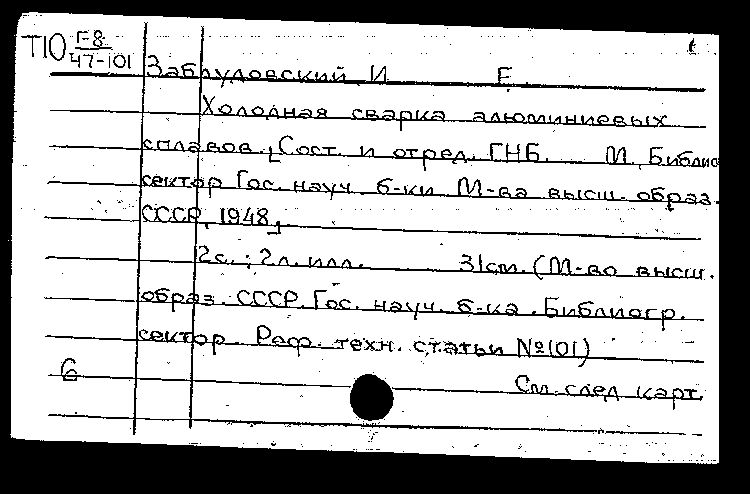 Т10 Г8
47-101
Забрудовский И Е
Холодная сварка алюминиевых
сплавов. [Сост. и отред. ГНБ. М, Библио
сектор Гос. науч. б-ки М-ва высш. образ.
СССР, 1948]
2с.; 2л. илл. 31см. (М-во высш.
образ. СССР. Гос. науч. б-ка. Библиогр.
сектор. Реф. техн. статьи №101)
См. след карт.
6